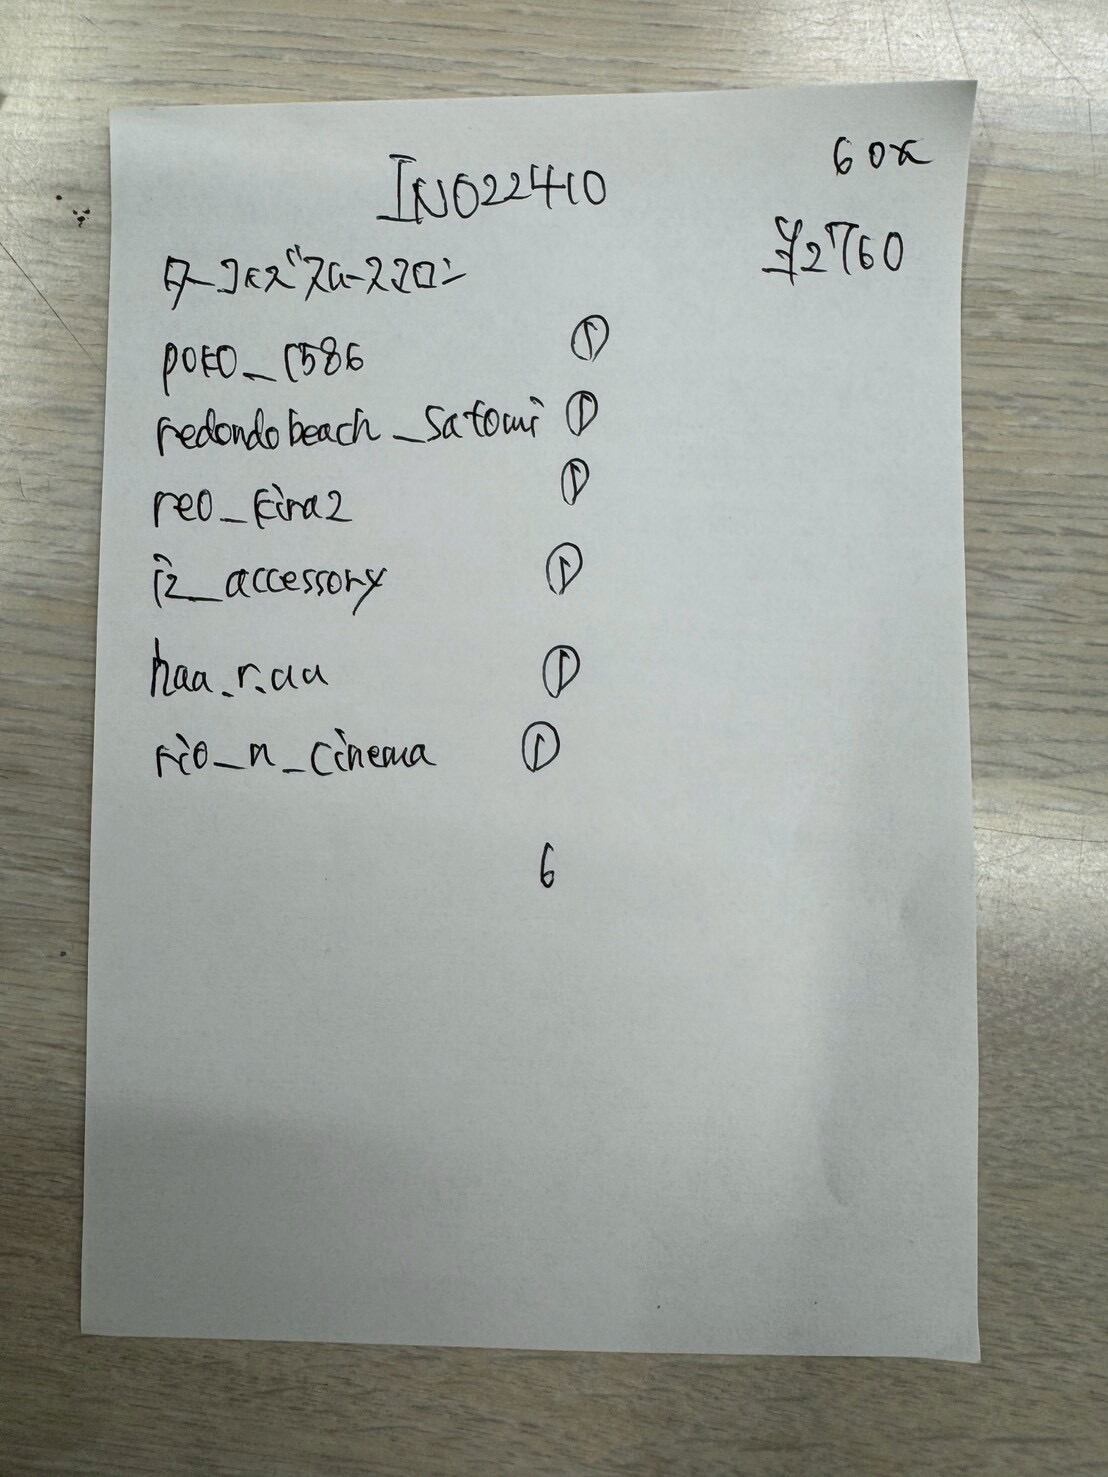 INO22410
60x
¥2760
poko_1586 ①
redondobeach_satomi ①
reo_kira2 ①
iz_accessory ①
haa.r.aa ①
rio_n_cinema ①
6